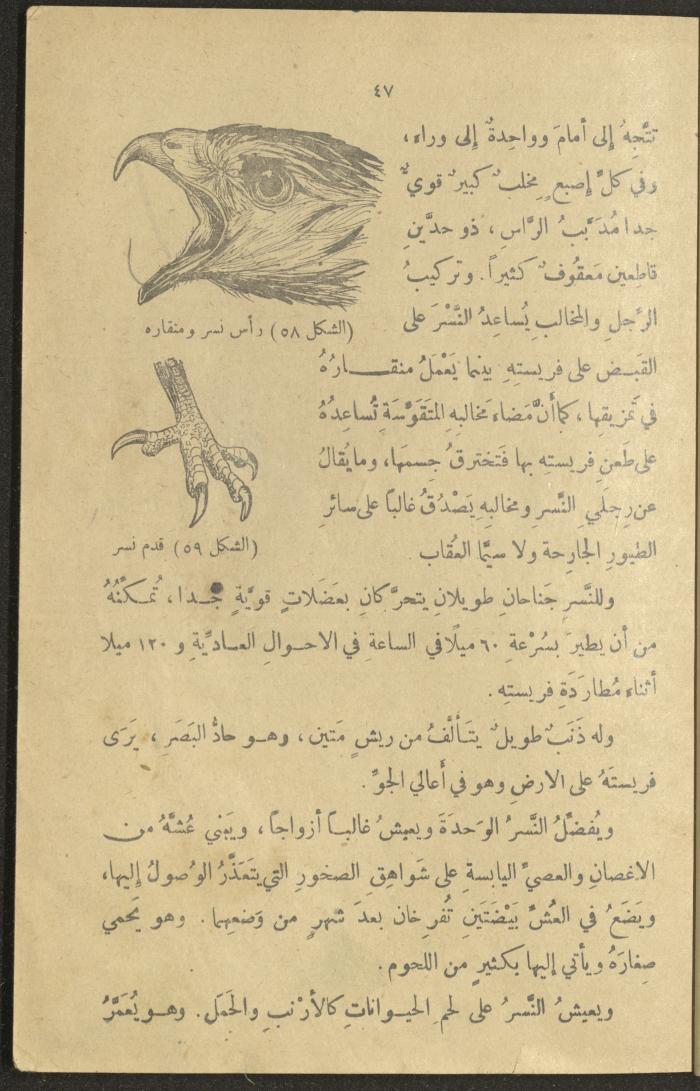 ٤٧
تتَّجِهُ إِلى أمامَ وواحِدةٌ إِلى وراء،
وفي كلِّ إِصبعٍ مِخلبٌ كبيرٌ قويٌّ
جدا مُدَبَّبُ الرَّاسِ، ذو حدَّينِ
قاطعين مَعقُوفٌ كثيراً. وتركيبُ
الرِّجلِ والمخالبِ يُساعِدُ النَّسْرَ على
(الشكل ٥٨) رأس نسر ومنقاره
القَبَض على فريستِهِ بينما يَعْمَلُ منقارُهُ
في تمزيقِها، كما أنَّ مَضاءَ مَخالبهِ المتَقَوِّسَةِ تُساعِدُهُ
على طَعنِ فريستِه بها فَتخترقُ جِسمَها، وما يُقالُ
عن رِجلَيِ النَّسرِ ومخالبِهِ يَصْدُقُ غالبًا على سائرِ
الطيورِ الجارِحة ولا سيَّما العُقاب.
(الشكل ٥٩) قدم نسر
وللنَّسرِ جَناحانِ طويلانِ يتحرَّكانِ بعَضَلاتٍ قويَّةٍ جدا، تُمكِّنُهُ
من أن يطيرَ بسُرْعةِ ٦٠ ميلًا في الساعة في الاحوالِ العاديَّةِ و ١٢٠ ميلا
أثناء مُطارَدَةِ فريستِه.
وله ذَنَبٌ طويلٌ يتَألَّفُ من ريشٍ مَتين، وهو حادُّ البَصَرِ، يَرَى
فريستَهُ على الارضِ وهو في أعالي الجوِّ.
ويُفضِّلُ النَّسرُ الوَحدَةَ ويعيشُ غالباً أزواجاً، ويَبْني عُشَّهُ من
الاغصانِ والعصيِّ اليابسةِ على شَواهِقِ الصخورِ التي يتَعَذَّرُ الوُصولُ إِليها،
ويَضَعُ في العُشِّ بَيْضَتَينِ تُفرِخان بعدَ شهرٍ من وَضعِهِما. وهو يَحمي
صِغارَهُ ويأتي إليها بكثيرٍ من اللحوم.
ويعيشُ النَّسرُ على لحمِ الحيواناتِ كالأرْنبِ والحَمَلِ. وهو يُعَمَّرُ